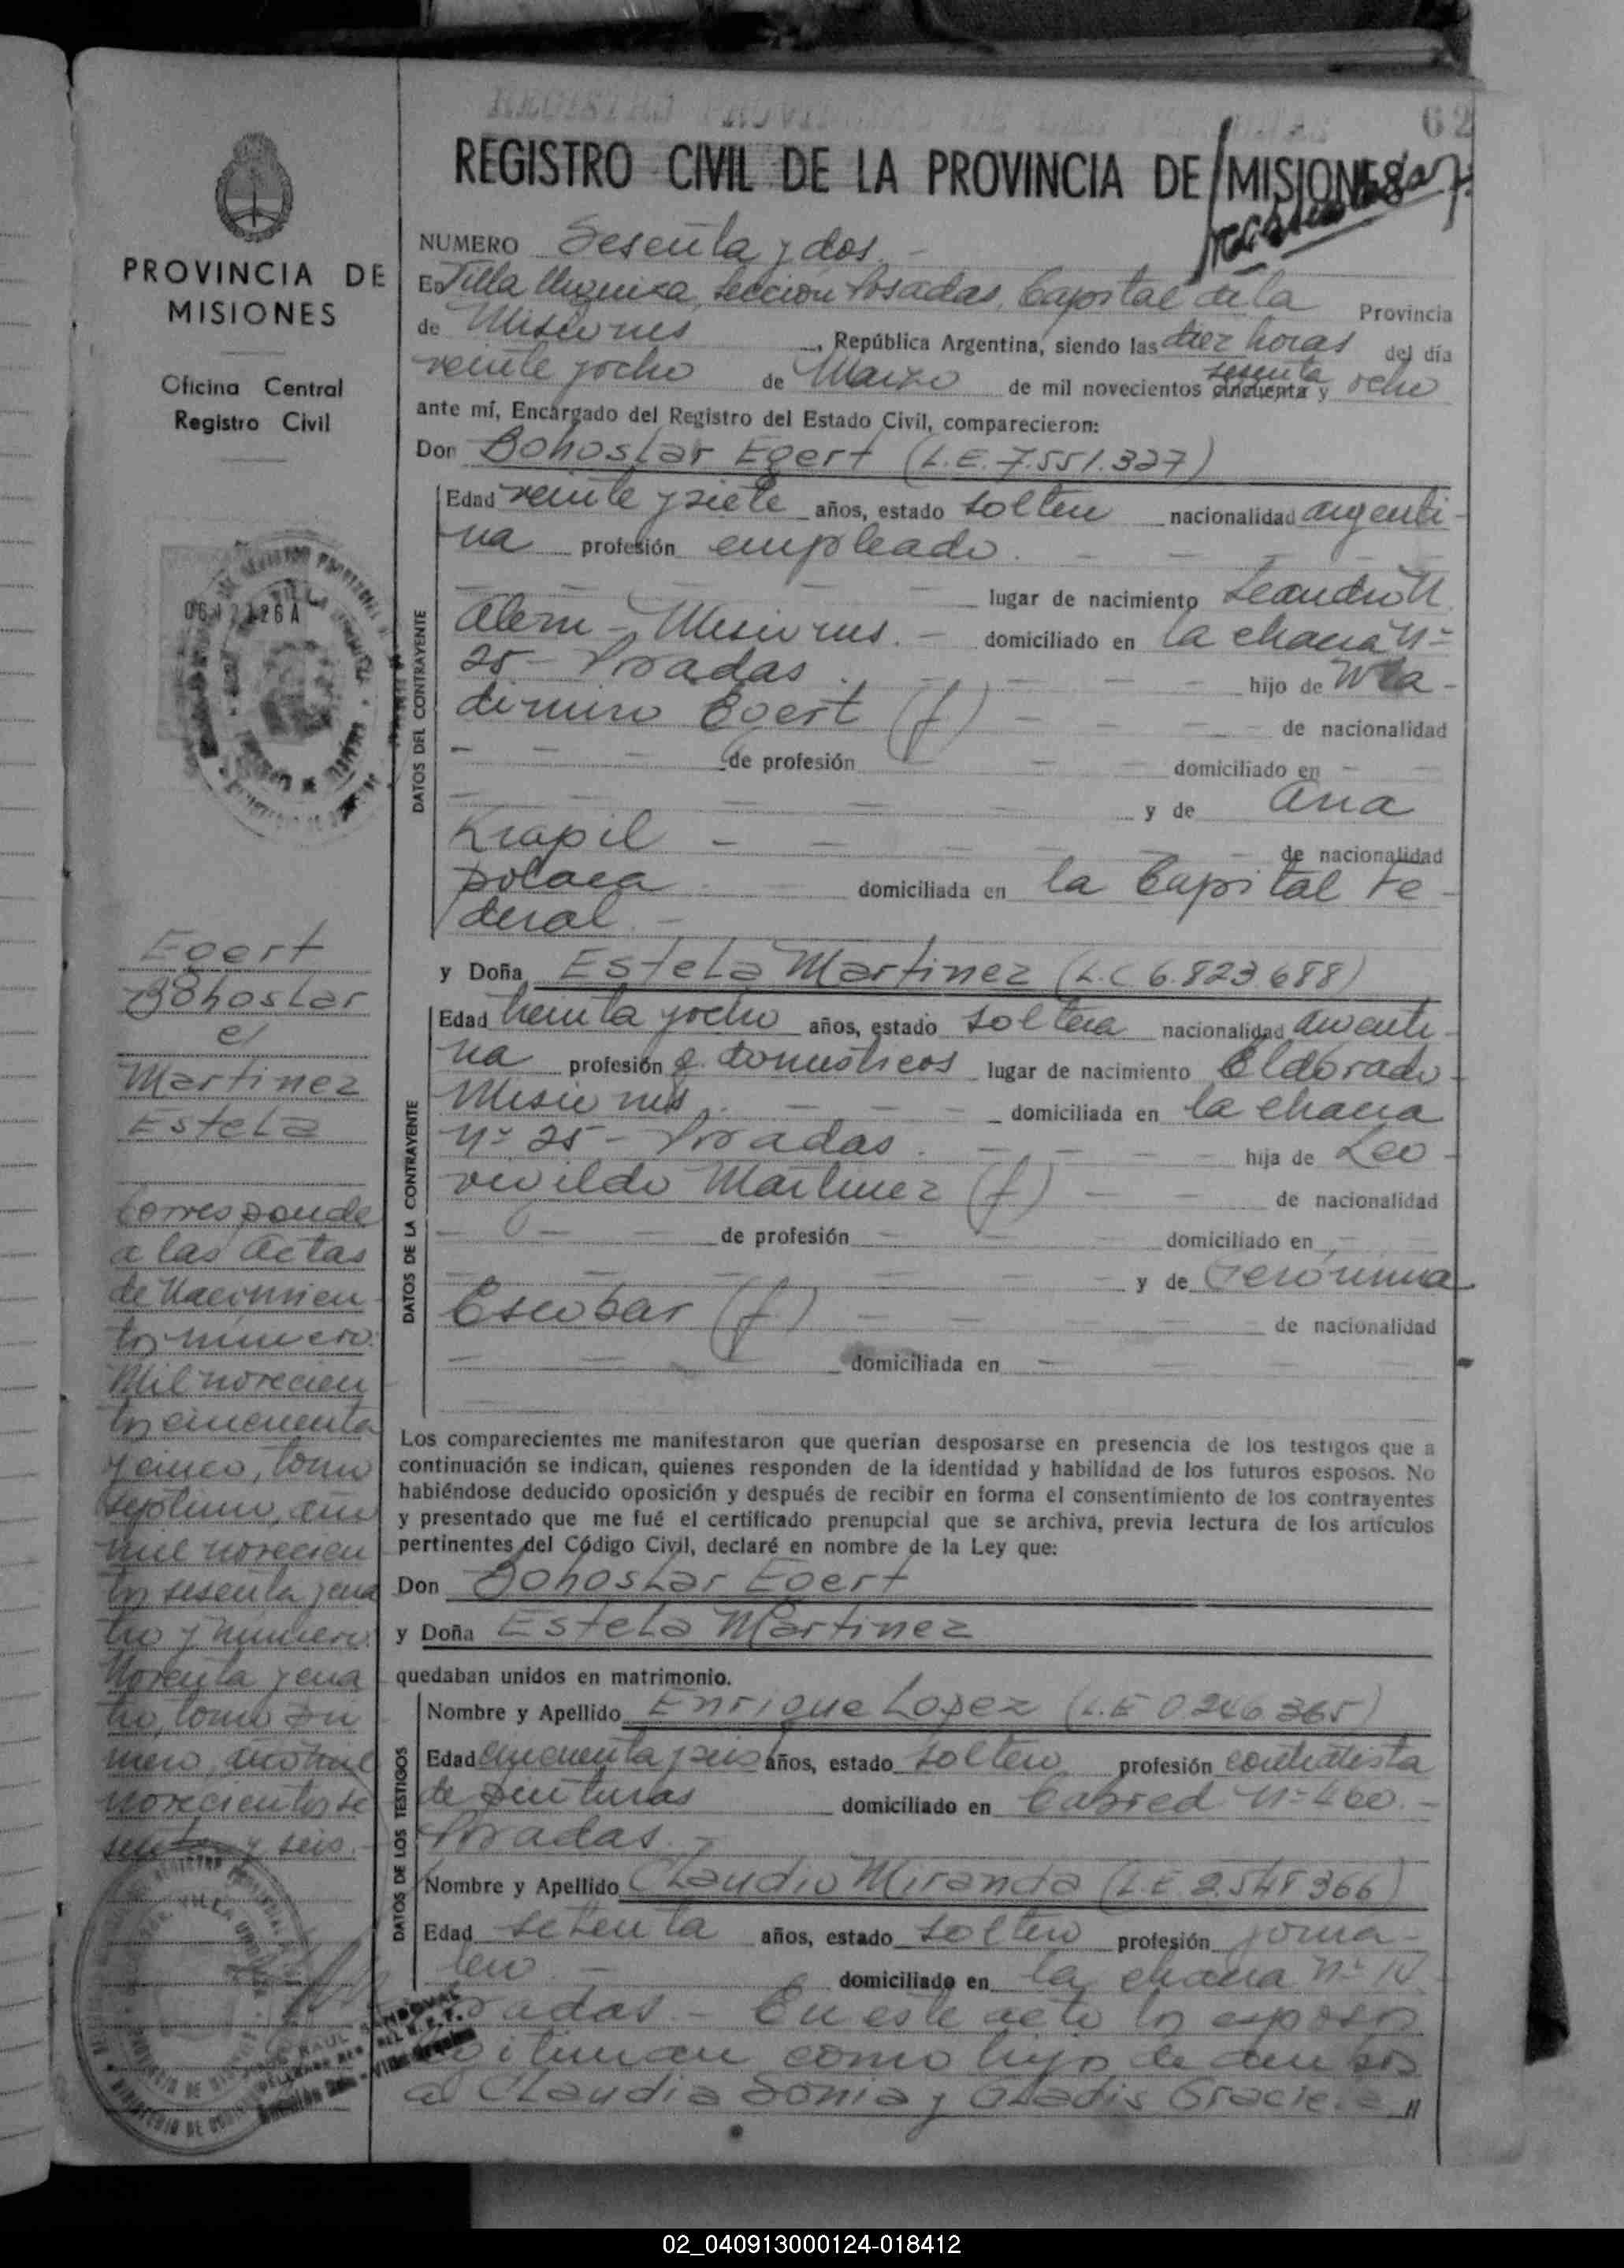 62
REGISTRO CIVIL DE LA PROVINCIA DE MISIONES
PROVINCIA DE
MISIONES
Oficina Central
Registro Civil
0642126A
Egert
Bohoslar
e/
Martinez
Estela
Corresponde
a las actas
de Nacimien
tos número:
Mil novecien
tos cincuenta
y cinco, tomo
septimo, año
mil novecien
tos sesenta y cua
tro y número:
Noventa y cua
tro, tomo Pri
mero, año mil
novecientos se
senta y seis.-
NUMERO Sesenta y dos.-
En Villa Urquiza, Sección Posadas, Capital de la Provincia
de Misiones, República Argentina, siendo las diez horas del día
veinte y ocho de Marzo de mil novecientos sesenta cincuenta y ocho
ante mí, Encargado del Registro del Estado Civil, comparecieron:
Don Bohoslar Egert (L.E. 7.551.327)
DATOS DEL CONTRAYENTE
Edad veinte y siete años, estado soltero nacionalidad argenti-
na profesión empleado.
lugar de nacimiento Leandro N.
Alem - Misiones.- domiciliado en la chacra Nº
25 - Posadas. hijo de Wla-
dimiro Egert (f) de nacionalidad
de profesión domiciliado en
y de Ana
Krapil de nacionalidad
polaca domiciliada en la Capital Fe-
deral.-
y Doña Estela Martinez (L.C 6.823.688)
DATOS DE LA CONTRAYENTE
Edad treinta y ocho años, estado soltera nacionalidad argenti-
na profesión q. domésticos lugar de nacimiento Eldorado-
Misiones. domiciliada en la chacra
Nº 25 - Posadas. hija de Leo-
vigildo Martinez (f) de nacionalidad
de profesión domiciliado en
y de Gerónima
Escobar (f) de nacionalidad
domiciliada en
Los comparecientes me manifestaron que querían desposarse en presencia de los testigos que a
continuación se indican, quienes responden de la identidad y habilidad de los futuros esposos. No
habiéndose deducido oposición y después de recibir en forma el consentimiento de los contrayentes
y presentado que me fué el certificado prenupcial que se archiva, previa lectura de los artículos
pertinentes del Código Civil, declaré en nombre de la Ley que:
Don Bohoslar Egert
y Doña Estela Martinez
quedaban unidos en matrimonio.
DATOS DE LOS TESTIGOS
Nombre y Apellido Enrique Lopez (L.E 0.246.365)
Edad cincuenta y seis años, estado soltero profesión contratista
de pinturas domiciliado en Cabred Nº 460.-
Posadas.-
Nombre y Apellido Claudio Miranda (L.E 2.548 366)
Edad setenta años, estado soltero profesión jorna-
lero.- domiciliado en la chacra Nº IV-
Posadas - En este acto los esposos
legitiman como hijos de ambos
a Claudia Sonia y Gladis Graciela //
02_040913000124-018412